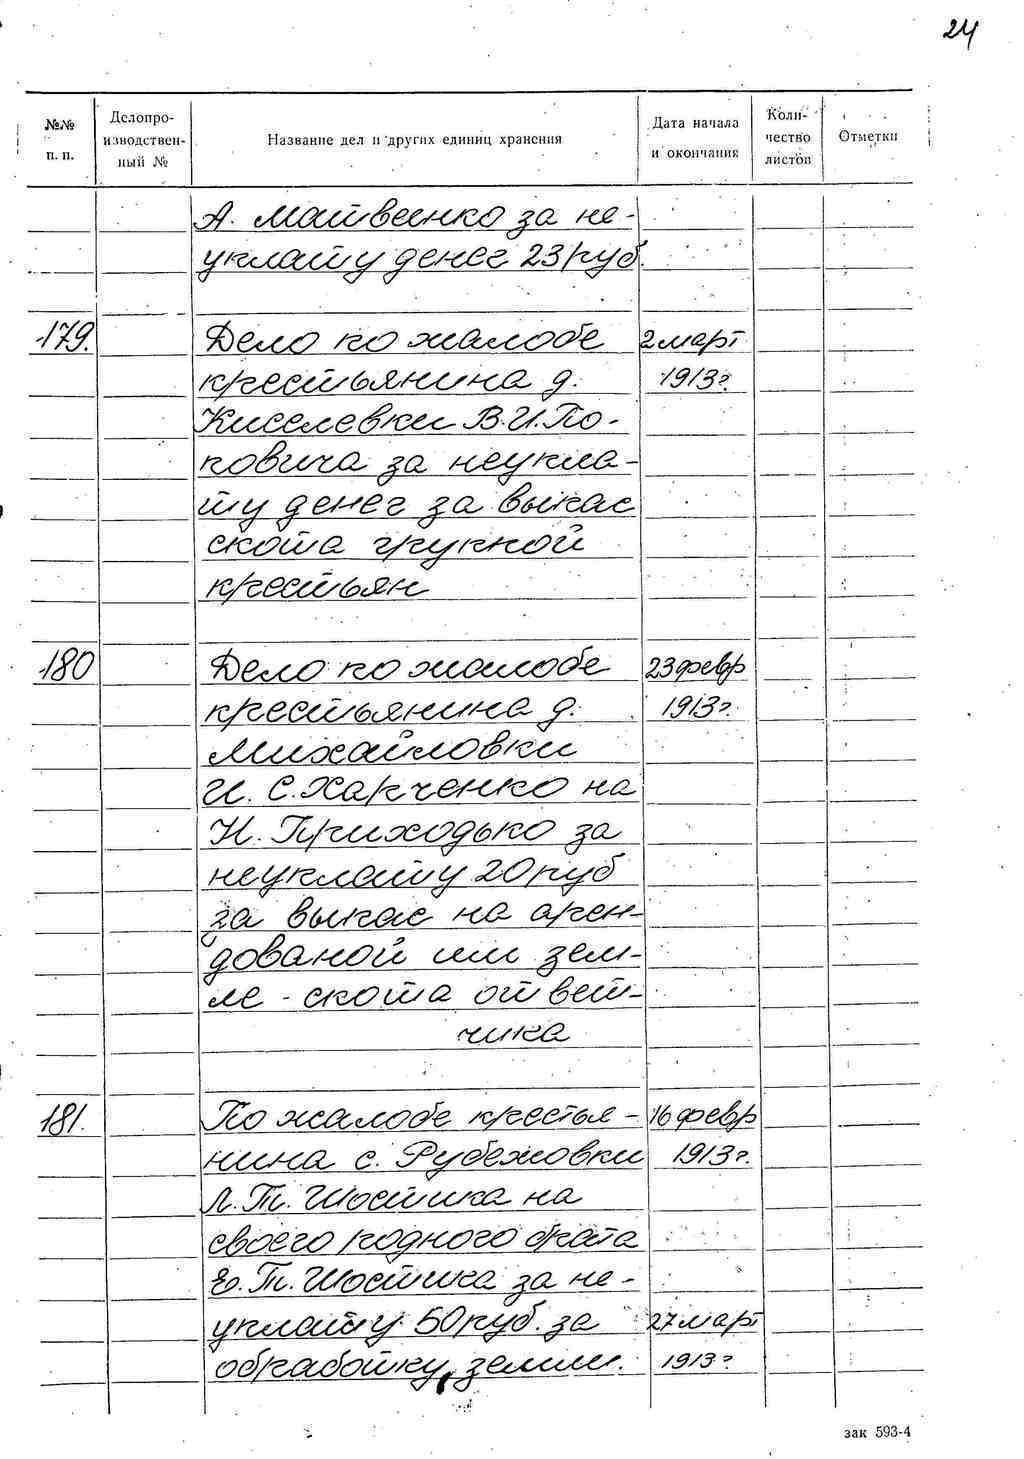 24
№№ п. п.
Делопроизводствен-ный №
Название дел и других единиц хранения
Дата начала и окончания
Коли-чество листов
Отметки
А. Матвеенко за не-
уплату денег 23 руб.
179. Дело по жалобе 2 март
крестьянина д. 1913г.
Киселевки В.И. По-
повича за неупла-
ту денег за выпас
скота группой
крестьян
180 Дело по жалобе 23 февр
крестьянина д. 1913г.
Михайловки
И. С. Харченко на
Н. Приходько за
неуплату 20 руб
за выпас на арен-
дованой им зем-
ле - скота ответ-
чика
181. По жалобе крестья- 16 февр
нина с. Рубежовки 1913г.
Л. Т. Шостика на
своего родного брата
Е. Т. Шостика за не-
уплату 50 руб. за 27 март
обработку земли. 1913г
зак 593-4